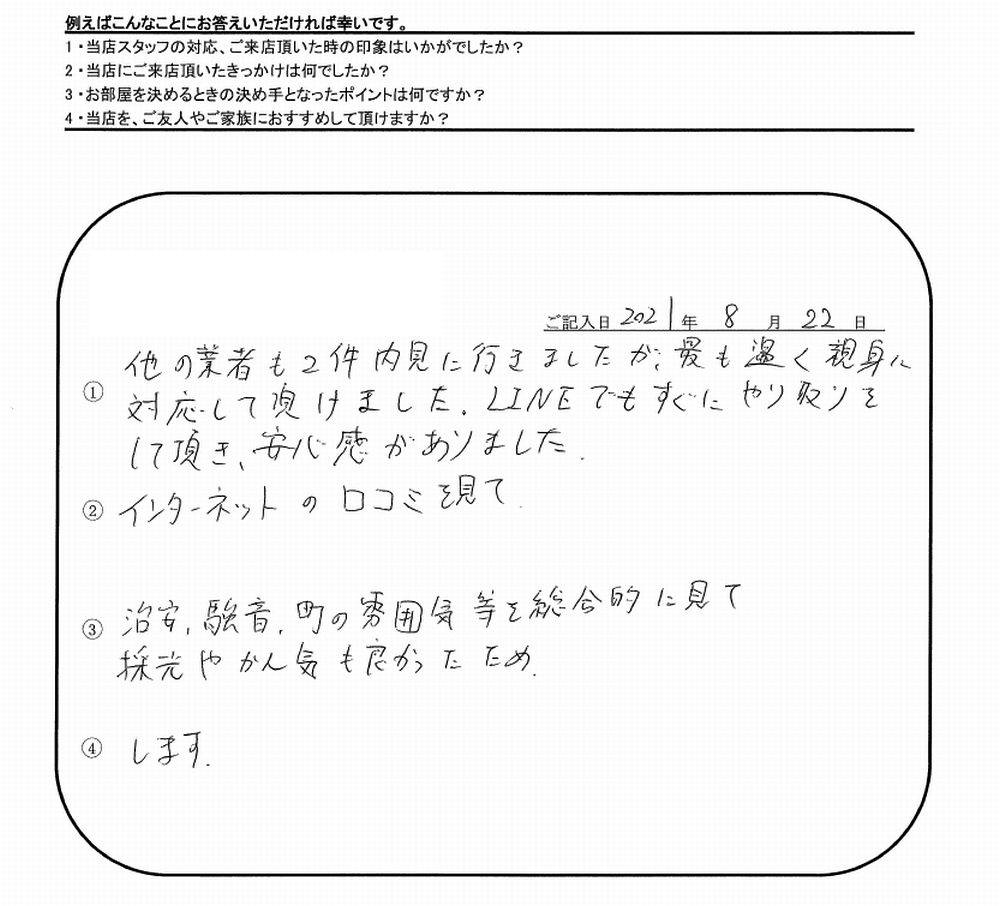 例えばこんなことにお答えいただければ幸いです。
1・当店スタッフの対応、ご来店頂いた時の印象はいかがでしたか？
2・当店にご来店頂いたきっかけは何でしたか？
3・お部屋を決めるときの決め手となったポイントは何ですか？
4・当店を、ご友人やご家族におすすめして頂けますか？
ご記入日 2021 年 8 月 22 日
① 他の業者も2件内見に行きましたが、最も温く親身に
対応して頂けました。LINEでもすぐにやり取りを
して頂き、安心感がありました.
② インターネットの口コミを見て.
③ 治安, 騒音, 町の雰囲気等を総合的に見て
採光やかん気も良かったため.
④ します.